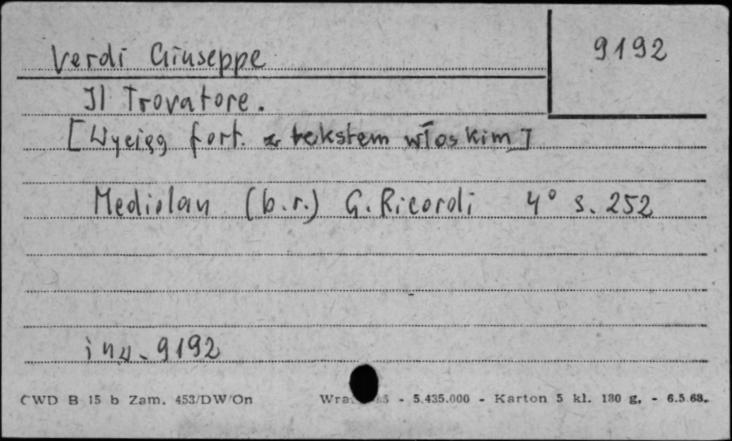 Verdi Giuseppe
9192
Il Trovatore.
[Wyciąg fort. z tekstem włoskim]
Mediolan (b.r.) G. Ricordi 4° s. 252
inw. 9192
CWD B 15 b Zam. 453/DW/On - 5.435.000 - Karton 5 kl. 180 g. - 6.5.68.